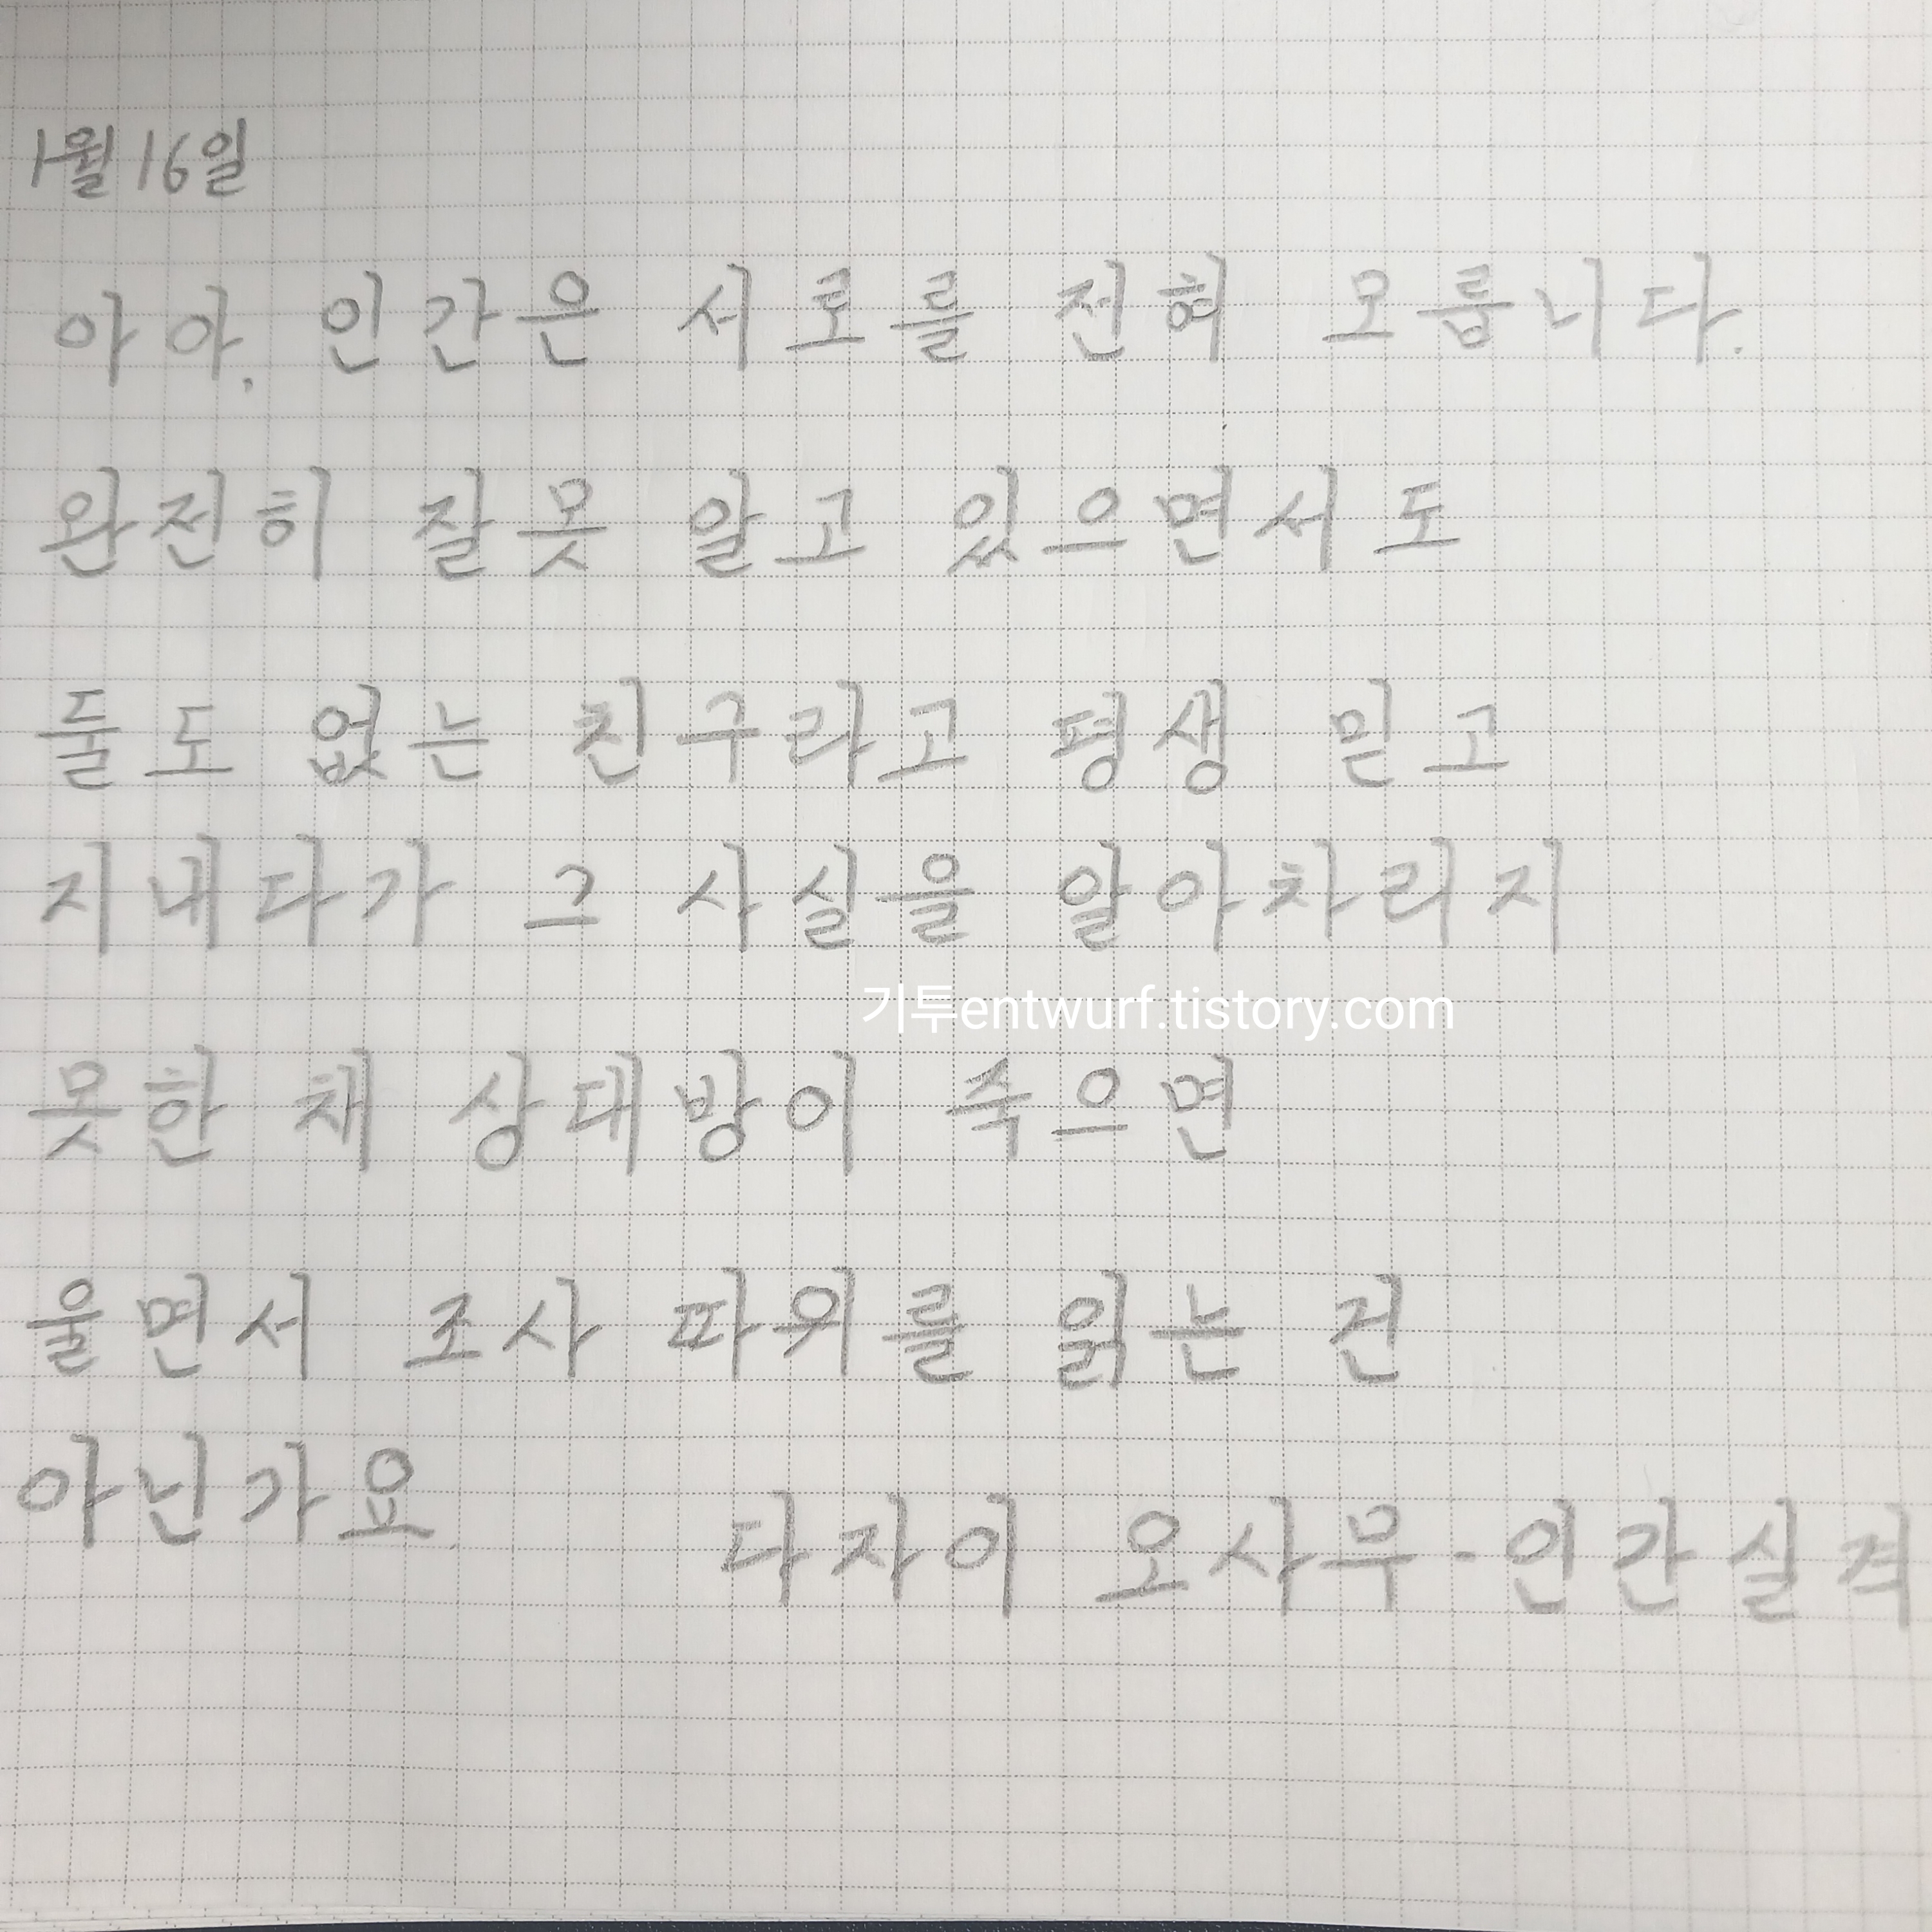 1월 16일
아아. 인간은 서로를 전혀 모릅니다.
완전히 잘못 알고 있으면서도
둘도 없는 친구라고 평생 믿고
지내다가 그 사실을 알아차리지
기투entwurf.tistory.com
못한 채 상대방이 죽으면
울면서 조사 따위를 읽는 건
아닌가요.
다자이 오사무-인간실격